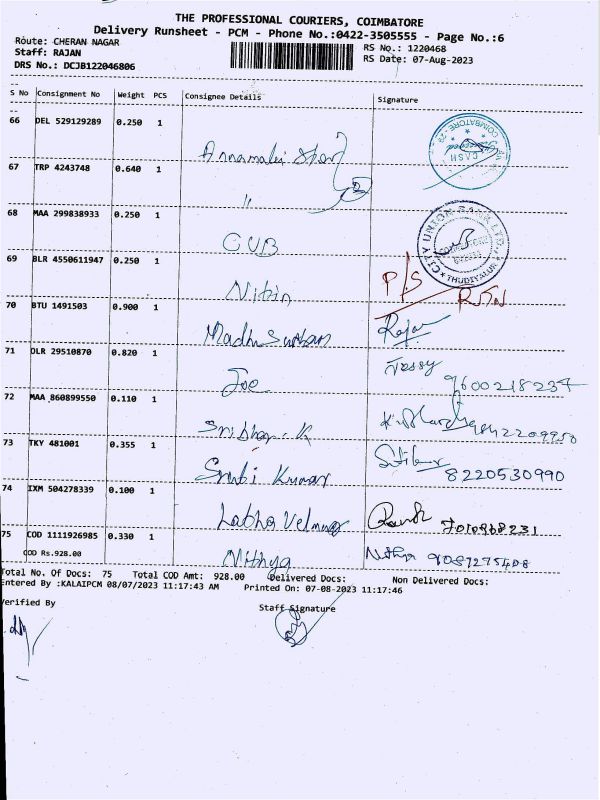 THE PROFESSIONAL COURIERS, COIMBATORE
Delivery Runsheet - PCM - Phone No.:0422-3505555 - Page No.:6
Route: CHERAN NAGAR
RS No.: 1220468
Staff: RAJAN
RS Date: 07-Aug-2023
DRS No.: DCJB122046806
S No Consignment No Weight PCS Consignee Details Signature
66 DEL 529129289 0.250 1
Annamalai Stor
COIMBATORE - 29
CASH
67 TRP 4243748 0.640 1
"
2
68 MAA 299838933 0.250 1
CUB
CITY UNION BANK LTD.
THUDIYALUR
69 BLR 4550611947 0.250 1
Nitin
P/S
RTN
70 BTU 1491503 0.900 1
Madhu Suthan
Rajan
71 DLR 29510870 0.820 1
Joe
Jessy
9600218234
72 MAA 860899550 0.110 1
K
73 TKY 481001 0.355 1
Kumar
8220530990
74 IXM 504278339 0.100 1
Labha
75 COD 1111926985 0.330 1
Nithya
Nithya 9087275408
COD Rs.928.00
Total No. Of Docs: 75 Total COD Amt: 928.00 Delivered Docs: Non Delivered Docs:
Entered By :KALAIPCM 08/07/2023 11:17:43 AM Printed On: 07-08-2023 11:17:46
Verified By
Staff Signature